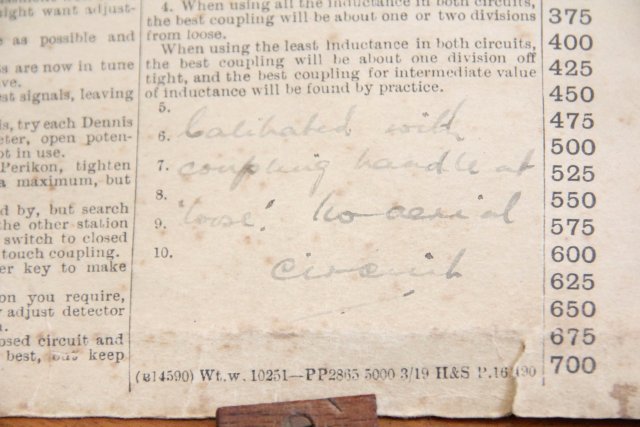 ight want adjust-
e as possible and
s are now in tune
ve.
st signals, leaving
ls, try each Dennis
eter, open poten-
ot in use.
Perikon, tighten
a maximum, but
d by, but search
the other station
switch to closed
touch coupling.
er key to make
on you require,
adjust detector
n.
osed circuit and
best, keep
4. When using all the inductance in both circuits,
the best coupling will be about one or two divisions
from loose.
When using the least Inductance in both circuits,
the best coupling will be about one division off
tight, and the best coupling for intermediate value
of inductance will be found by practice.
5.
6. Calibrated with
7. coupling handle at
8.
9. 'loose'. No aerial
10.
circuit
(B14590) Wt.w. 10251—PP2865 5000 3/19 H&S P.16/190
375
400
425
450
475
500
525
550
575
600
625
650
675
700